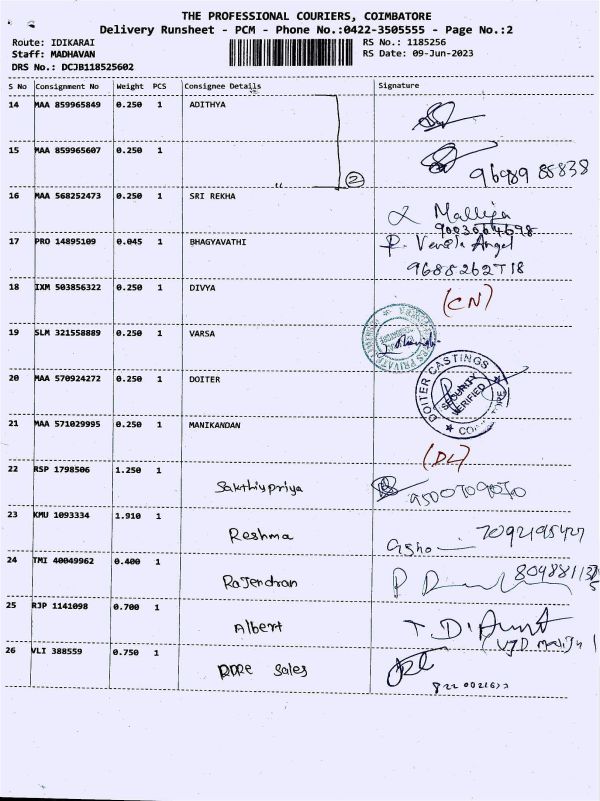 THE PROFESSIONAL COURIERS, COIMBATORE
Delivery Runsheet - PCM - Phone No.:0422-3505555 - Page No.:2
Route: IDIKARAI RS No.: 1185256
Staff: MADHAVAN RS Date: 09-Jun-2023
DRS No.: DCJB118525602
S No Consignment No Weight PCS Consignee Details Signature
14 MAA 859965849 0.250 1 ADITHYA
15 MAA 859965607 0.250 1 " 2 96989 85838
16 MAA 568252473 0.250 1 SRI REKHA Malliga
9003664698
17 PRO 14895109 0.045 1 BHAGYAVATHI
9688262718
18 IXM 503856322 0.250 1 DIVYA (CN)
19 SLM 321558889 0.250 1 VARSA
20 MAA 570924272 0.250 1 DOITER DOITER CASTINGS SECURITY VERIFIED
21 MAA 571029995 0.250 1 MANIKANDAN (DL)
22 RSP 1798506 1.250 1 Sakthiypriya 9500709070
23 KMU 1093334 1.910 1 Reshma 7092195427
24 TMI 40049962 0.400 1 Rajendran
25 RJP 1141098 0.700 1 Albert
26 VLI 388559 0.750 1 Sales